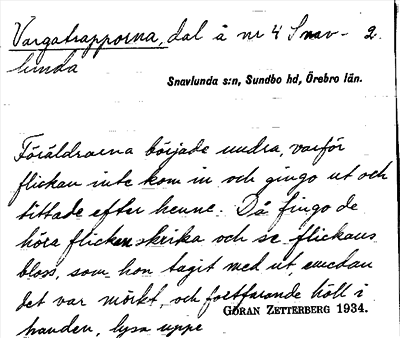 Vargatrapporna, dal å nr 4 Snav- 2.
lunda
Snavlunda s:n, Sundbo hd, Örebro län.
Föräldrarna började undra varför
flickan inte kom in och gingo ut och
tittade efter henne. Då fingo de
höra flicken skrika och se flickans
bloss, som hon tagit med ut emedan
det var mörkt, och fortfarande höll i
handen, lysa uppe
GÖRAN ZETTERBERG 1934.